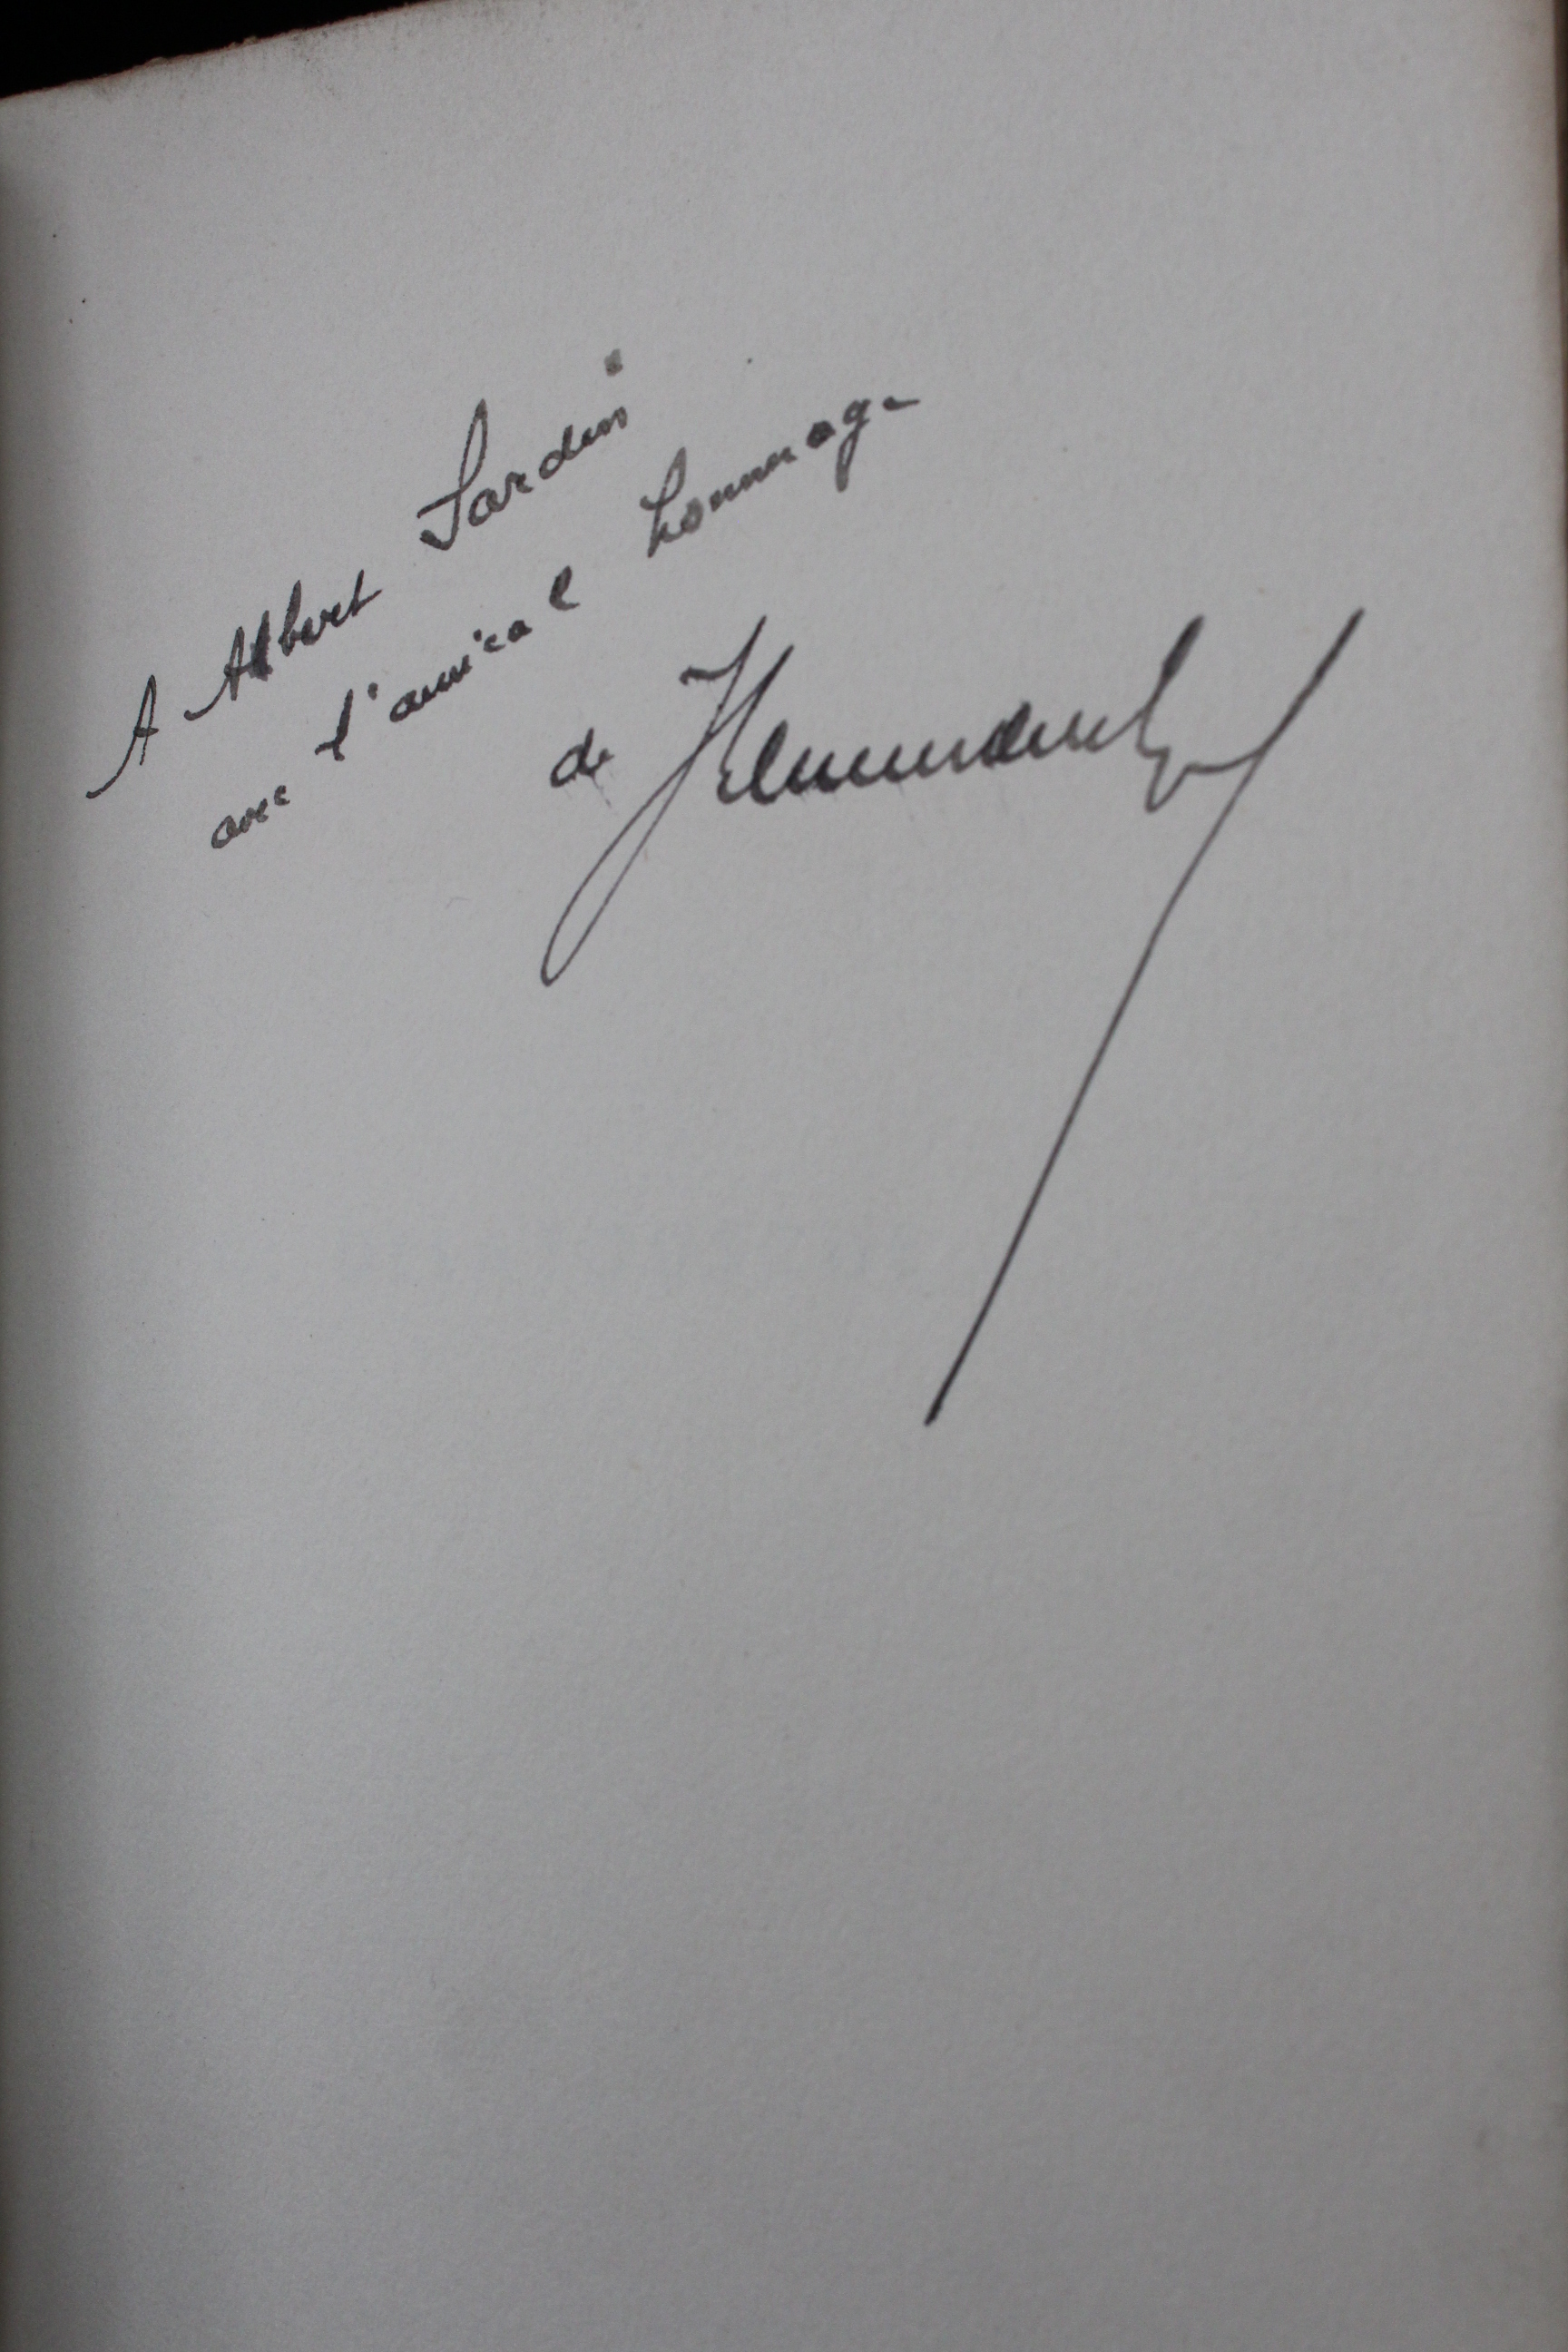 A Albert Sardin
avec l'amical hommage
de